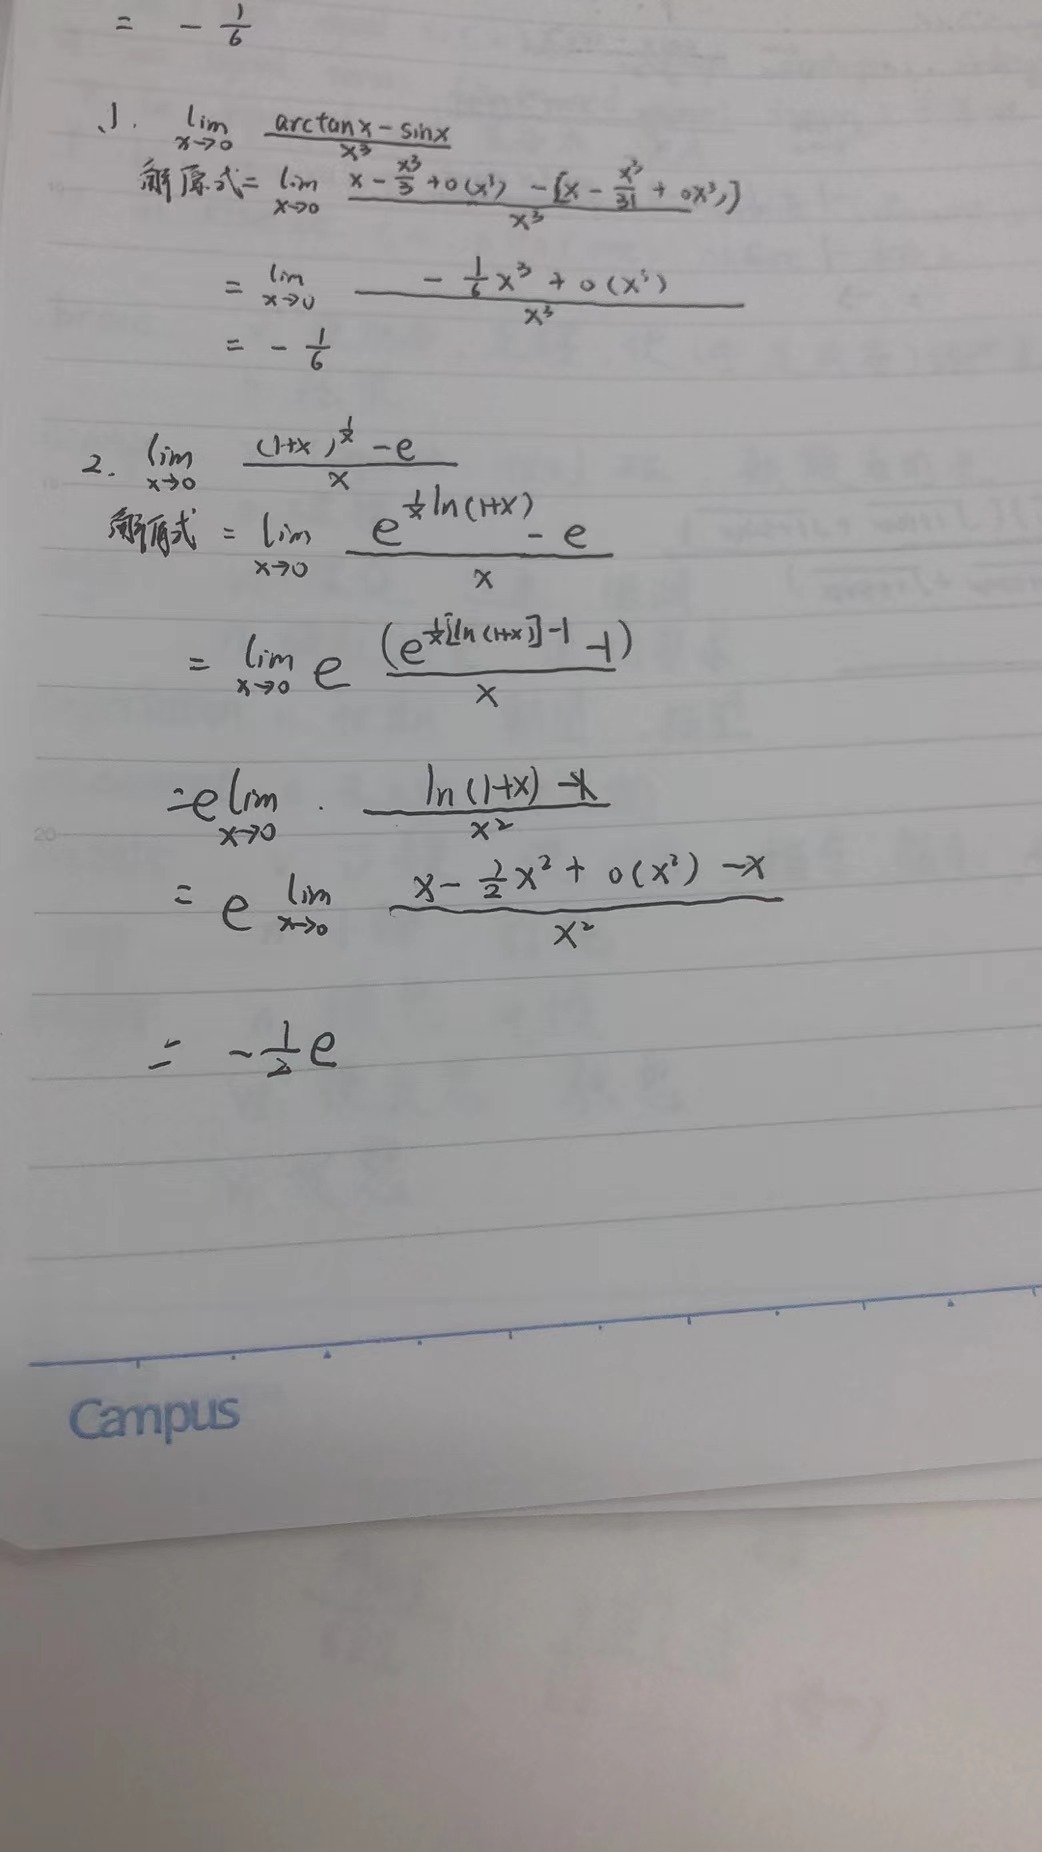 = - 1/6
1. lim x→0 (arctanx - sinx)/x³
解原式 = lim x→0 (x - x³/3 + o(x³) - [x - x³/3! + ox³)])/x³
= lim x→0 (- 1/6 x³ + o(x³))/x³
= - 1/6
2. lim x→0 ((1+x)^(1/x) - e)/x
解原式 = lim x→0 (e^(1/x ln(1+x)) - e)/x
= lim x→0 e (e^(1/x[ln(1+x)]-1) -1)/x
= e lim x→0 · (ln(1+x) - x)/x²
= e lim x→0 (x - 1/2 x² + o(x²) - x)/x²
= - 1/2 e
Campus